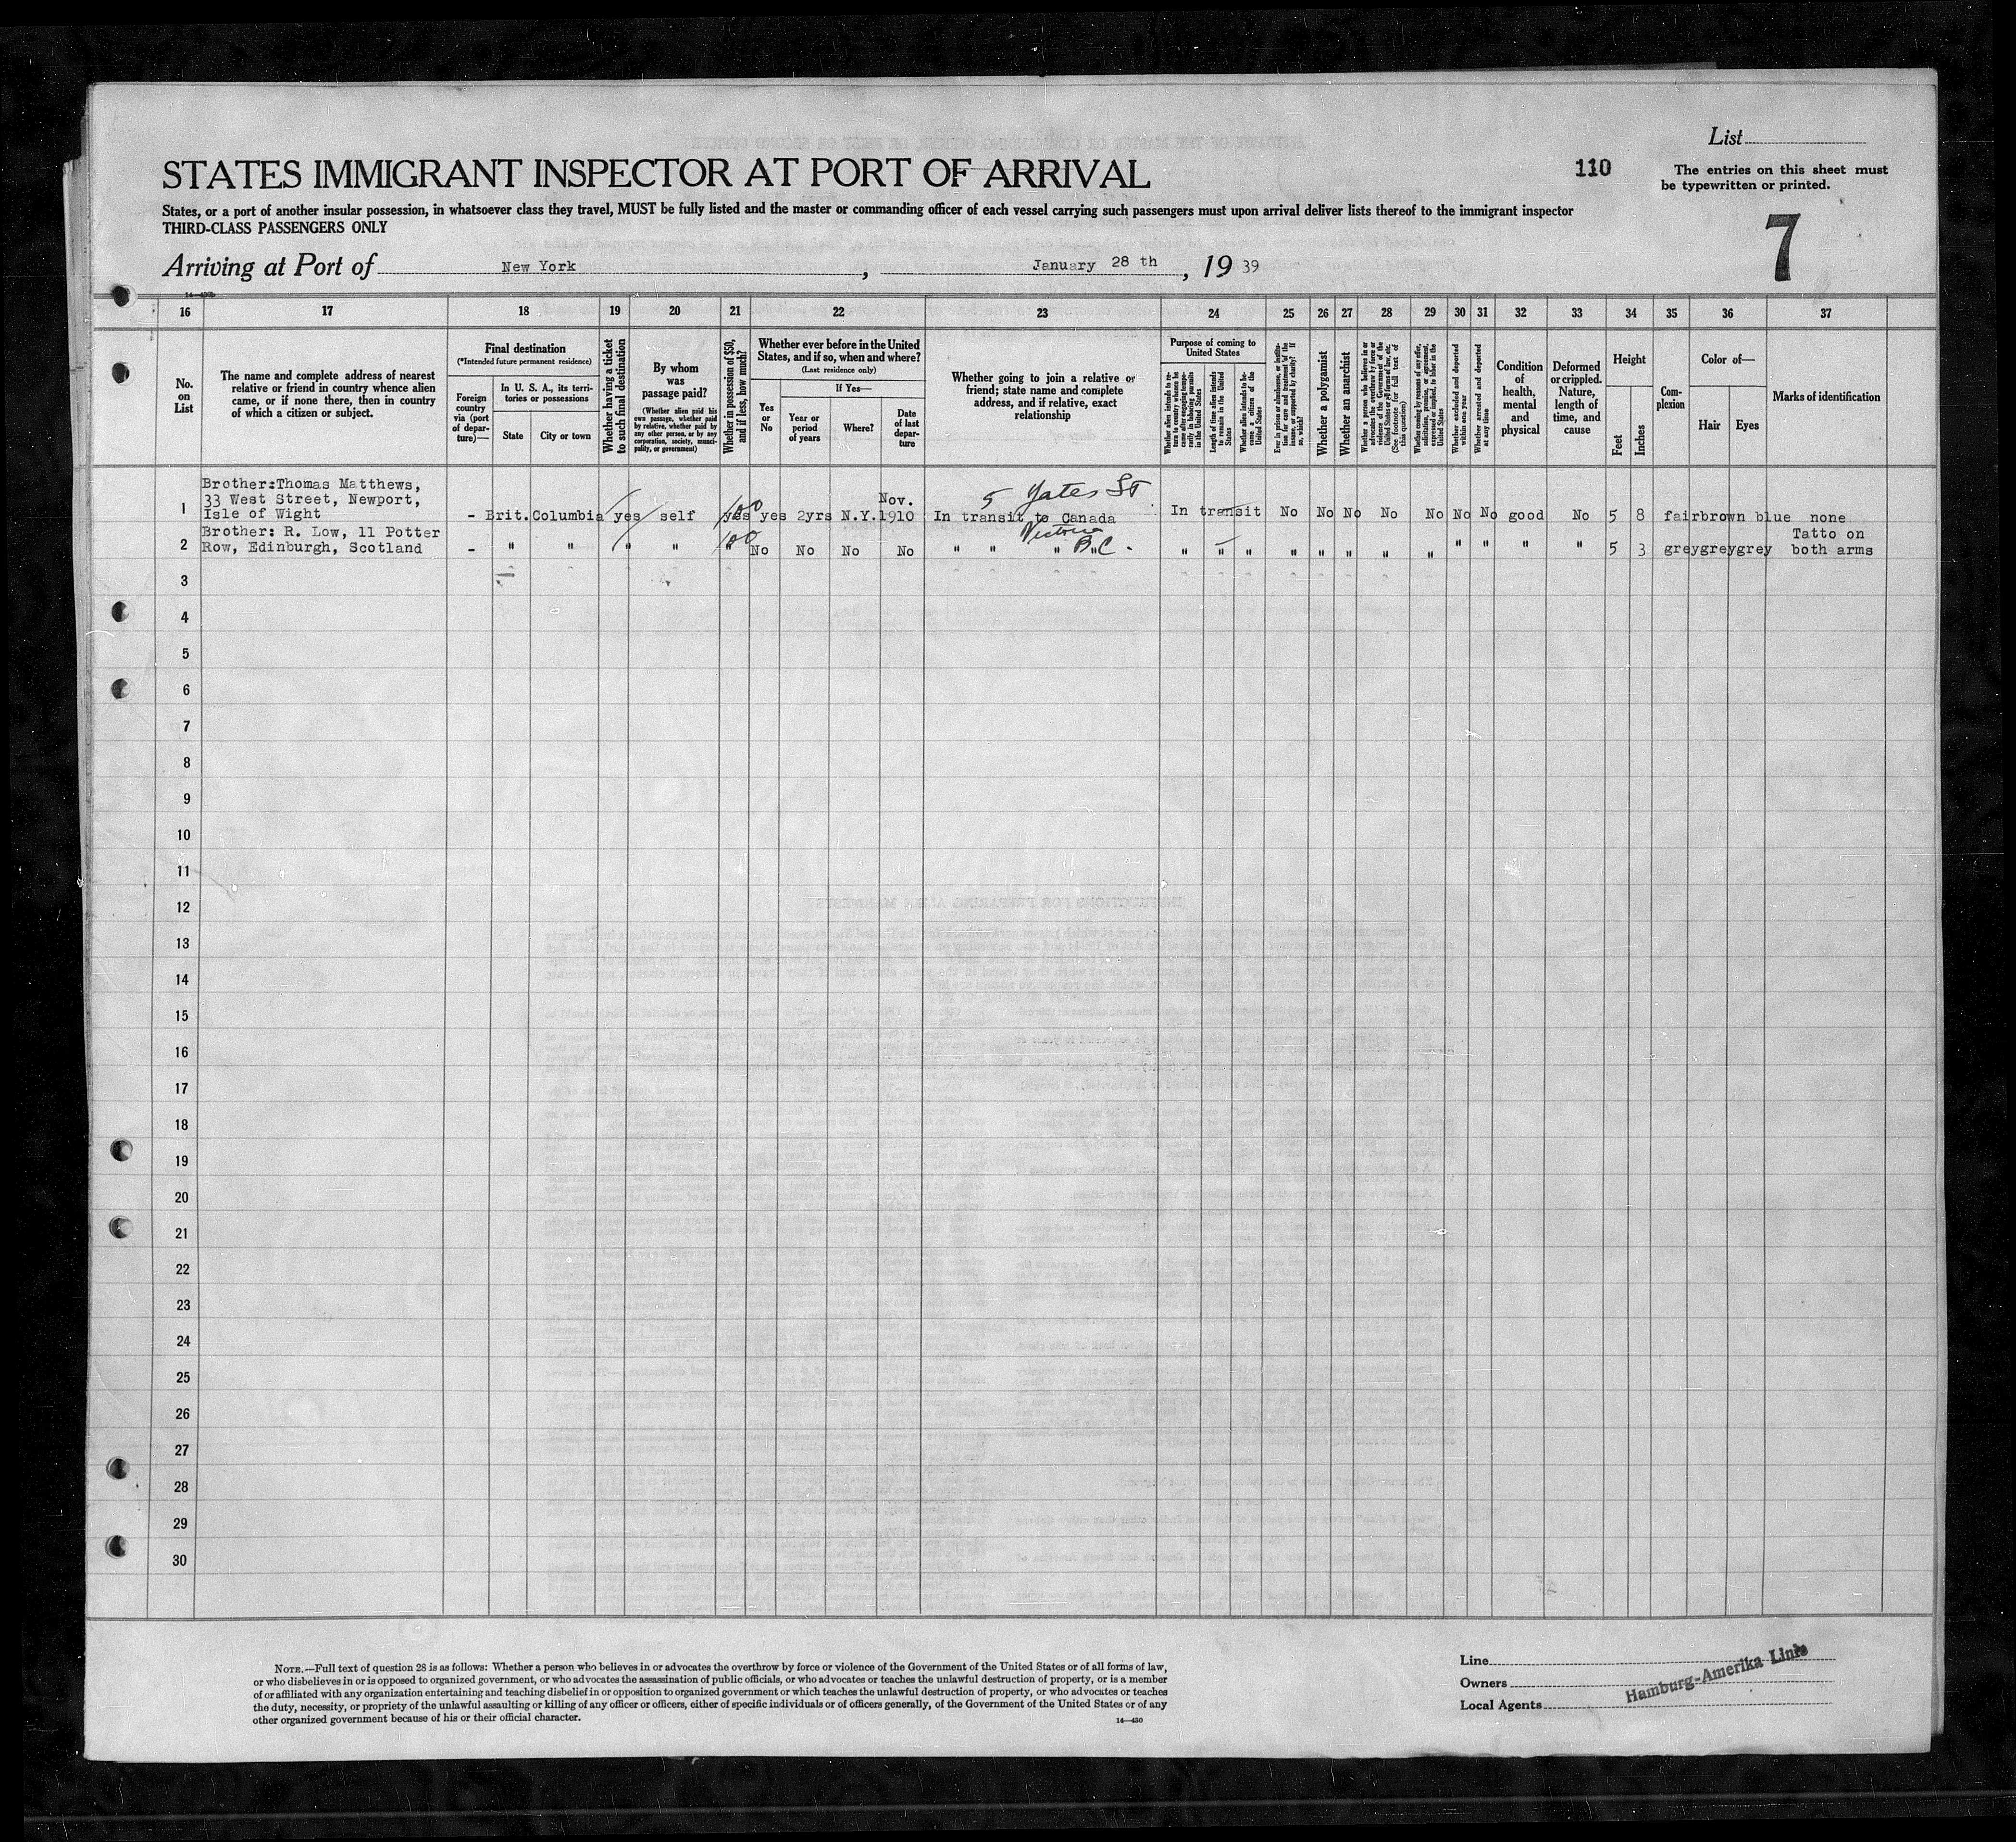 List
STATES IMMIGRANT INSPECTOR AT PORT OF ARRIVAL
110
The entries on this sheet must
be typewritten or printed.
States, or a port of another insular possession, in whatsoever class they travel, MUST be fully listed and the master or commanding officer of each vessel carrying such passengers must upon arrival deliver lists thereof to the immigrant inspector
THIRD-CLASS PASSENGERS ONLY
7
Arriving at Port of New York, January 28 th, 19 39
16 17 18 19 20 21 22 23 24 25 26 27 28 29 30 31 32 33 34 35 36 37
No. on List
The name and complete address of nearest relative or friend in country whence alien came, or if none there, then in country of which a citizen or subject.
Final destination
(*Intended future permanent residence)
Foreign country via (port of departure)—
In U. S. A., its territories or possessions
State
City or town
Whether having a ticket to such final destination
By whom was passage paid?
(Whether alien paid his own passage, whether paid by relative, whether paid by any other person, or by any corporation, society, municipality, or government)
Whether in possession of $50, and if less, how much?
Whether ever before in the United States, and if so, when and where?
(Last residence only)
Yes or No
If Yes—
Year or period of years
Where?
Date of last departure
Whether going to join a relative or friend; state name and complete address, and if relative, exact relationship
Purpose of coming to United States
Whether alien intends to return to country whence he came after engaging temporarily in laboring pursuits in the United States
Length of time alien intends to remain in the United States
Whether alien intends to become a citizen of the United States
Ever in prison or almshouse, or institution for care and treatment of the insane, or supported by charity? If so, which?
Whether a polygamist
Whether an anarchist
Whether a person who believes in or advocates the overthrow by force or violence of the Government of the United States or all forms of law, etc. (See footnote for full text of this question)
Whether coming by reasons of any offer, solicitation, promise, or agreement, expressed or implied, to labor in the United States
Whether excluded and deported within one year
Whether arrested and deported at any time
Condition of health, mental and physical
Deformed or crippled. Nature, length of time, and cause
Height
Feet
Inches
Complexion
Color of—
Hair
Eyes
Marks of identification
Brother:Thomas Matthews,
33 West Street, Newport,
Isle of Wight
1 - Brit.Columbia yes self yes 100 yes 2yrs N.Y. Nov. 1910 5 Yates St In transit to Canada In transit No No No No No No No good No 5 8 fair brown blue none
Brother: R. Low, 11 Potter
Row, Edinburgh, Scotland
2 - " " " " " 100 No No No No " " " Victoria B.C. " " " " " " " " " " " " 5 3 grey grey grey Tatto on both arms
3
4
5
6
7
8
9
10
11
12
13
14
15
16
17
18
19
20
21
22
23
24
25
26
27
28
29
30
NOTE.—Full text of question 28 is as follows: Whether a person who believes in or advocates the overthrow by force or violence of the Government of the United States or of all forms of law,
or who disbelieves in or is opposed to organized government, or who advocates the assassination of public officials, or who advocates or teaches the unlawful destruction of property, or is a member
of or affiliated with any organization entertaining and teaching disbelief in or opposition to organized government or which teaches the unlawful destruction of property, or who advocates or teaches
the duty, necessity, or propriety of the unlawful assaulting or killing of any officer or officers, either of specific individuals or of officers generally, of the Government of the United States or of any
other organized government because of his or their official character.
14—430
Line
Owners
Local Agents
Hamburg-Amerika Linie